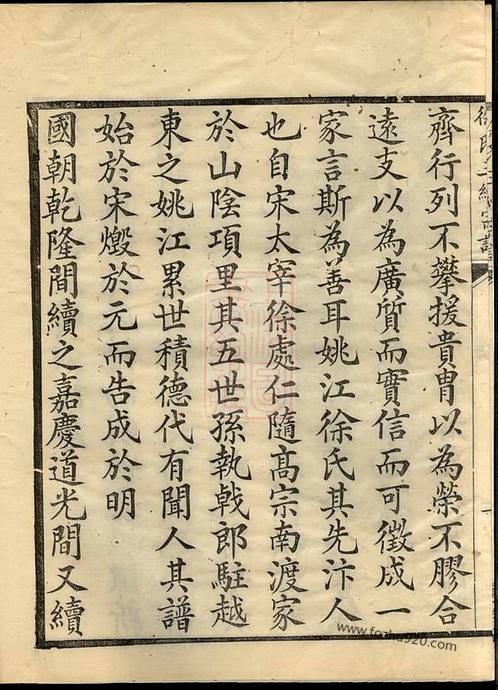 齊行列不攀援貴胄以為榮不膠合
遠支以為廣質而實信而可徵成一
家言斯為善耳姚江徐氏其先汴人
也自宋太宰徐處仁隨高宗南渡家
於山陰項里其五世孫執戟郎駐越
東之姚江累世積德代有聞人其譜
始於宋燬於元而告成於明
國朝乾隆間續之嘉慶道光間又續